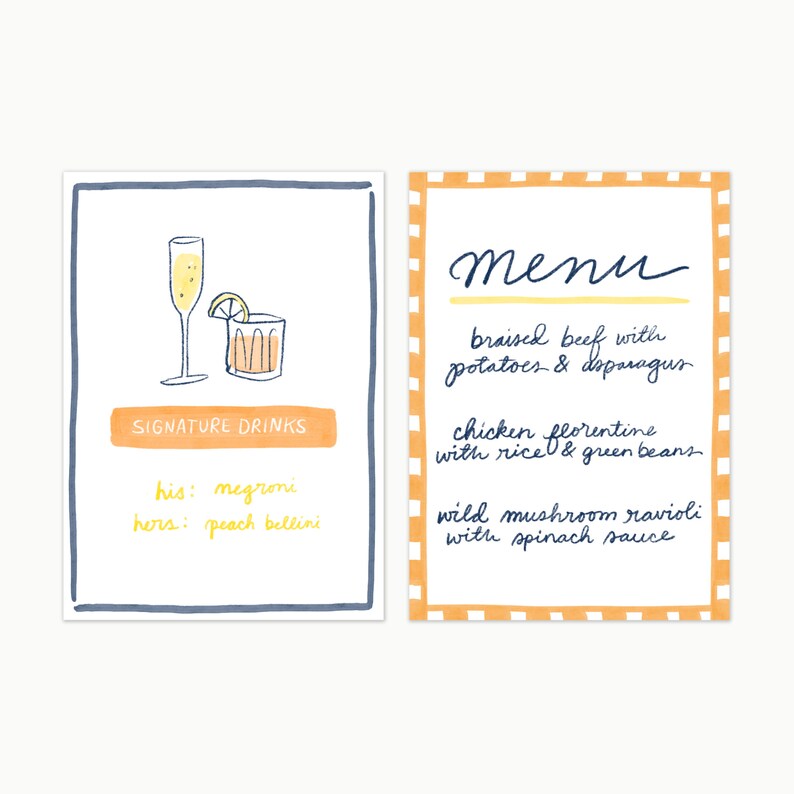 SIGNATURE DRINKS
his: negroni
hers: peach bellini
menu
braised beef with
potatoes & asparagus
chicken florentine
with rice & green beans
wild mushroom ravioli
with spinach sauce